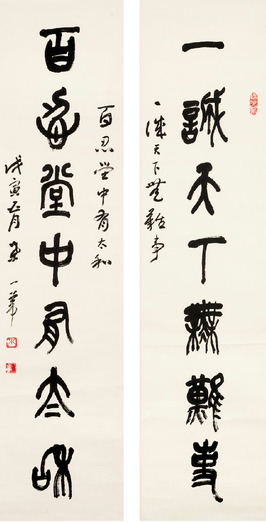 一誠天下無難事
一誠天下無難事
百忍堂中有太和
百忍堂中有太和
戊寅